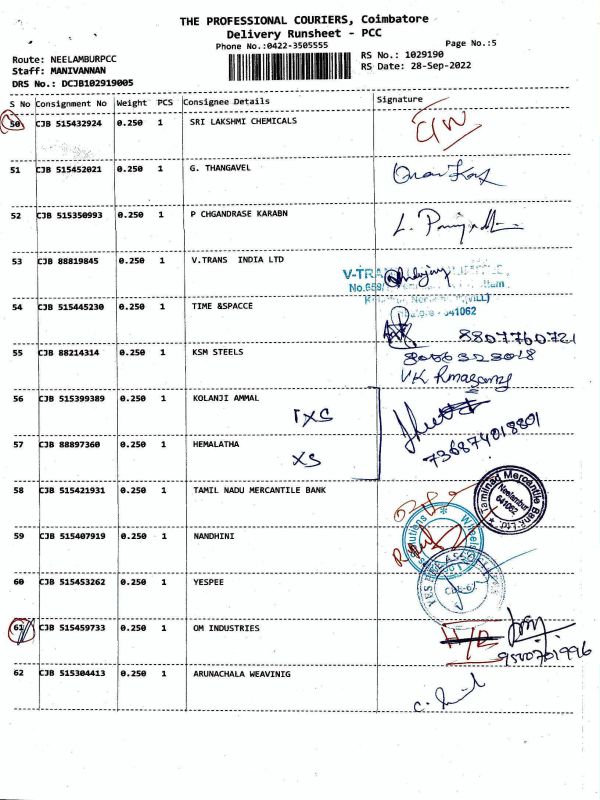 THE PROFESSIONAL COURIERS, Coimbatore
Delivery Runsheet - PCC
Phone No.:0422-3505555
Page No.:5
Route: NEELAMBURPCC
RS No.: 1029190
Staff: MANIVANNAN
RS Date: 28-Sep-2022
DRS No.: DCJB102919005
S No Consignment No Weight PCS Consignee Details Signature
50 CJB 515432924 0.250 1 SRI LAKSHMI CHEMICALS
51 CJB 515452021 0.250 1 G. THANGAVEL
52 CJB 515350993 0.250 1 P CHGANDRASE KARABN
53 CJB 88819845 0.250 1 V.TRANS INDIA LTD
V-TRA
No.659/
641062
54 CJB 515445230 0.250 1 TIME &SPACCE
8807760721
55 CJB 88214314 0.250 1 KSM STEELS
8056323018
VK
56 CJB 515399389 0.250 1 KOLANJI AMMAL
1XS
57 CJB 88897360 0.250 1 HEMALATHA
XS
736874018801
58 CJB 515421931 0.250 1 TAMIL NADU MERCANTILE BANK
Tamilnad Mercantile Bank Ltd.
Neelambur
641062
59 CJB 515407919 0.250 1 NANDHINI
60 CJB 515453262 0.250 1 YESPEE
61 CJB 515459733 0.250 1 OM INDUSTRIES
9500701996
62 CJB 515304413 0.250 1 ARUNACHALA WEAVINIG